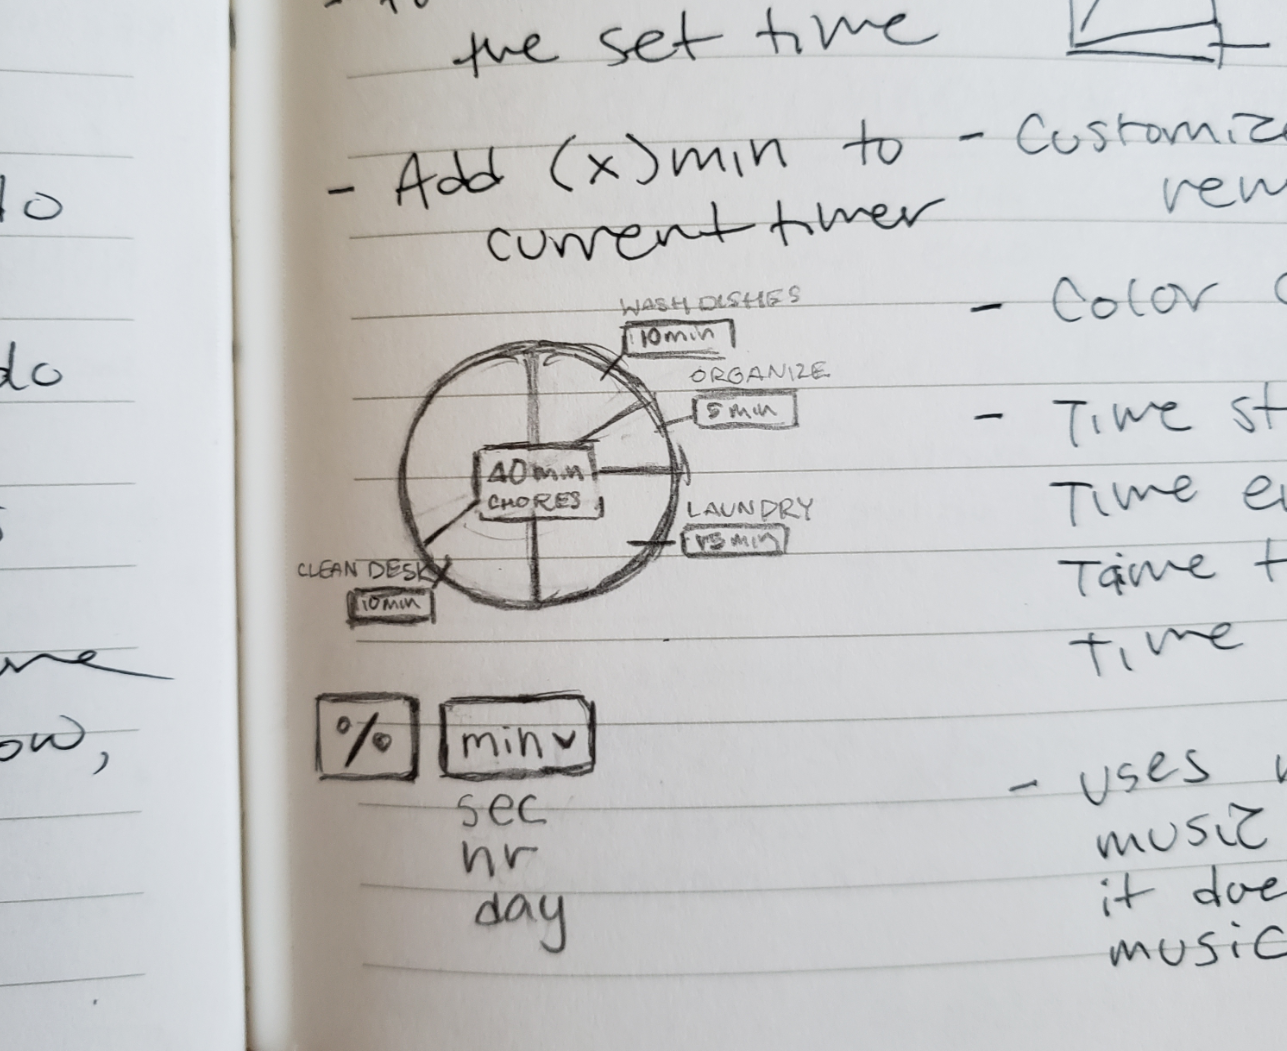 lo
do
ow,
the set time
- Add (x)min to
current timer
WASH DISHES
10min
ORGANIZE
5 min
40min
CHORES
LAUNDRY
15 min
CLEAN DESK
10min
%
min
sec
hr
day
- Customiz
rem
- Color
- Time st
Time e
Time t
Time
- uses
music
it doe
music